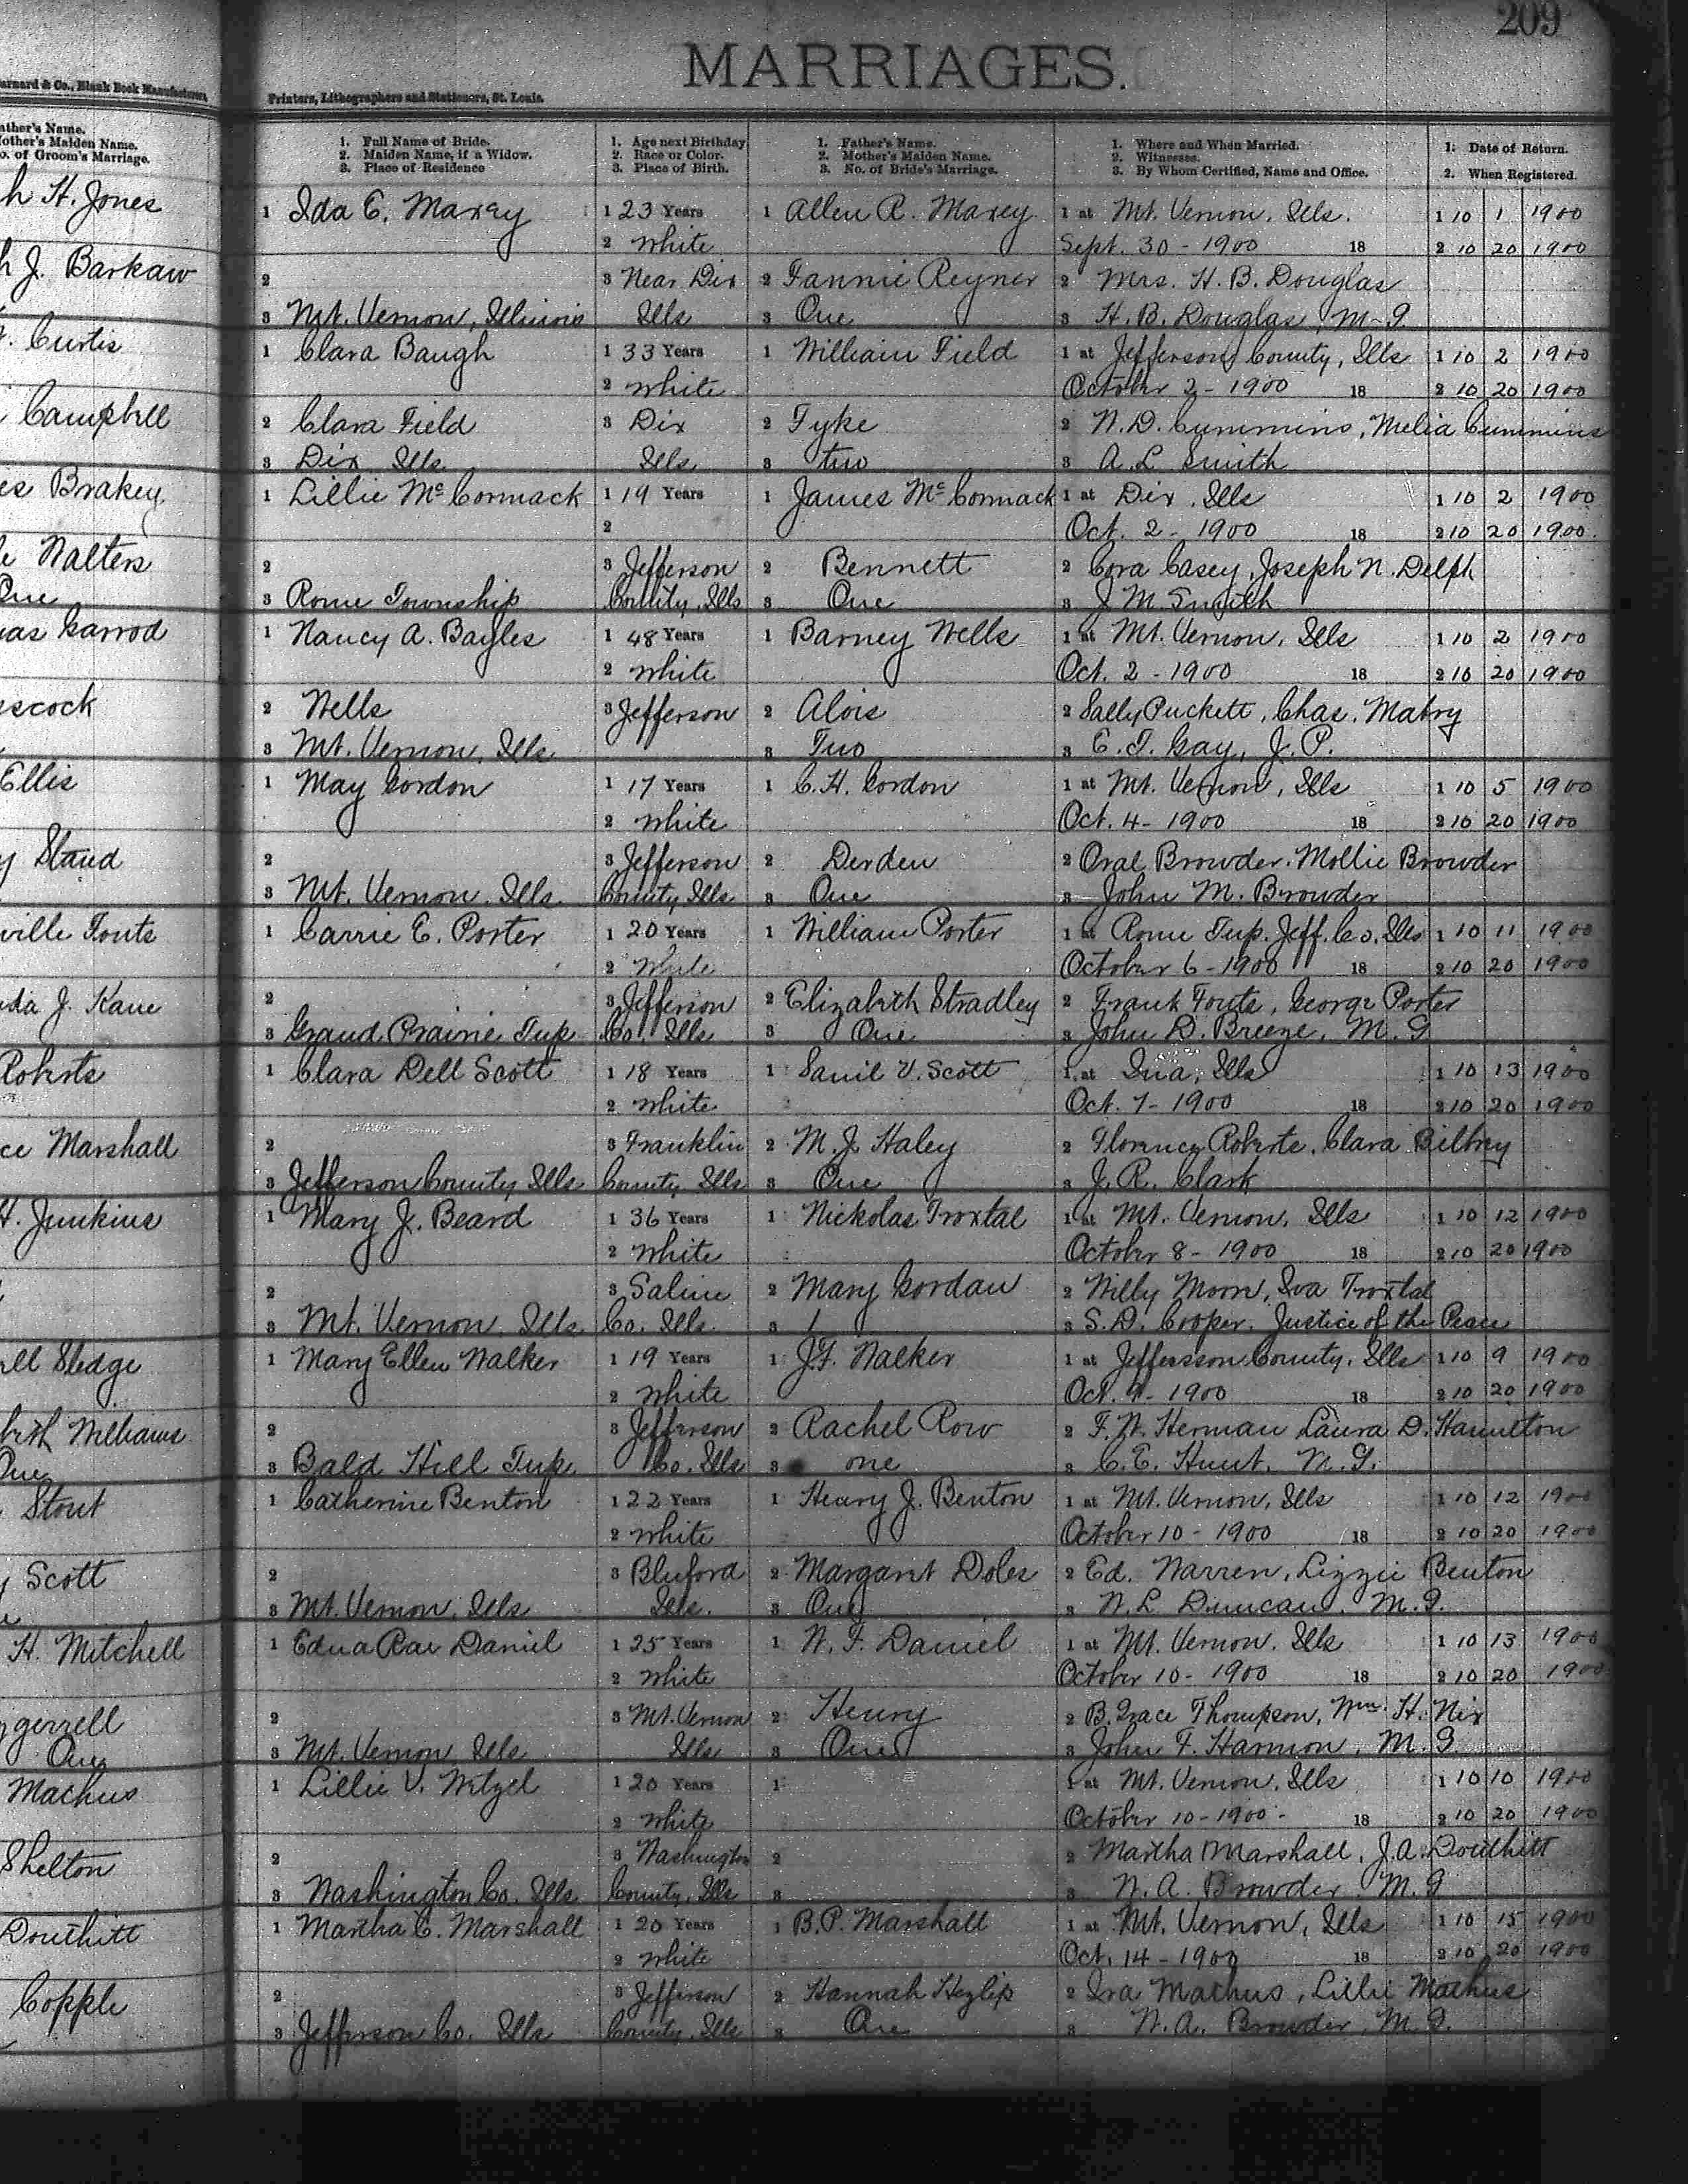 209
MARRIAGES.
Printers, Lithographers and Stationers, St. Louis.
Barnard & Co., Blank Book Manufacturers,
Father's Name.
Mother's Maiden Name.
No. of Groom's Marriage.
1. Full Name of Bride.
2. Maiden Name, if a Widow.
3. Place of Residence
1. Age next Birthday
2. Race or Color.
3. Place of Birth.
1. Father's Name.
2. Mother's Maiden Name.
3. No. of Bride's Marriage.
1. Where and When Married.
2. Witnesses.
3. By Whom Certified, Name and Office.
1. Date of Return.
2. When Registered.
h H. Jones
1 Ida E. Maxey 1 23 Years 1 Allen R. Maxey 1 at Mt. Vernon, Ills. 1 10 1 1900
2 White Sept. 30 - 1900 18 2 10 20 1900
h J. Barkaw
2 3 Near Dix 2 Fannie Reyner 2 Mrs. H. B. Douglas
3 Mt. Vernon, Illinois Ills 3 One 3 H. B. Douglas, M-G.
Curtis
1 Clara Baugh 1 33 Years 1 William Field 1 at Jefferson County, Ills 1 10 2 1900
2 White October 2 - 1900 18 2 10 20 1900
Campbell
2 Clara Field 3 Dix 2 Tyke 2 N. D. Cummins, Melia Cummins
3 Dix Ills Ills 3 two 3 A. L. Smith
es Brakey
1 Lillie Mc Cormack 1 19 Years 1 James Mc Cormack 1 at Dix, Ills 1 10 2 1900
2 Oct. 2 - 1900 18 2 10 20 1900.
Walters
2 3 Jefferson 2 Bennett 2 Cora Casey, Joseph N. Delph
One
3 Rome Township County, Ills 3 One 3 J M Smith
as Garrod
1 Nancy A. Bayles 1 48 Years 1 Barney Wells 1 at Mt. Vernon, Ills 1 10 2 1900
2 White Oct. 2 - 1900 18 2 10 20 1900
scock
2 Wells 3 Jefferson 2 Alois 2 Sally Puckett, Chas. Mabry
3 Mt. Vernon, Ills 3 Two 3 E. T. Gay, J. P.
Ellis
1 May Gordon 1 17 Years 1 C. H. Gordon 1 at Mt. Vernon, Ills 1 10 5 1900
2 White Oct. 4 - 1900 18 2 10 20 1900
y Staud
2 3 Jefferson 2 Derden 2 Oral Browder, Mollie Browder
3 Mt. Vernon, Ills. County, Ills 3 One 3 John M. Browder
ville Fouts
1 Carrie E. Porter 1 20 Years 1 William Porter 1 at Rome Twp. Jeff. Co. Ills 1 10 11 1900
2 White October 6 - 1900 18 2 10 20 1900
da J. Kane
2 3 Jefferson 2 Elizabeth Stradley 2 Frank Fouts, George Porter
3 Grand Prairie Twp. Co. Ills 3 One 3 John D. Breeze, M. G
Roberts
1 Clara Dell Scott 1 18 Years 1 Samil V. Scott 1 at Ina, Ills 1 10 13 1900
2 White Oct. 7 - 1900 18 2 10 20 1900
ce Marshall
2 3 Franklin 2 M. J. Haley 2 Florence Roberts, Clara Bilbrey
3 Jefferson County, Ills County, Ills 3 One 3 J. R. Clark
H. Junkins
1 Mary J. Beard 1 36 Years 1 Nickolas Troxtal 1 at Mt. Vernon, Ills 1 10 12 1900
2 White October 8 - 1900 18 2 10 20 1900
2 3 Saline 2 Mary Gordan 2 Willy Moon, Iva Troxtal
3 Mt. Vernon, Ills. Co. Ills. 3 1 3 S. D. Cooper, Justice of the Peace
ll Sledge
1 Mary Ellen Walker 1 19 Years 1 J. F. Walker 1 at Jefferson County, Ills 1 10 9 1900
2 White Oct. 9 - 1900 18 2 10 20 1900
beth Williams
2 3 Jefferson 2 Rachel Row 2 F. W. Herman Laura D. Hamilton
One
3 Bald Hill Twp. Co. Ills 3 one 3 C. E. Hunt, M. G.
Stout
1 Catherine Benton 1 22 Years 1 Henry J. Benton 1 at Mt. Vernon, Ills 1 10 12 1900
2 White October 10 - 1900 18 2 10 20 1900
y Scott
2 3 Bluford 2 Margaret Doles 2 Ed. Warren, Lizzie Benton
3 Mt. Vernon, Ills Ills. 3 One 3 W. L. Duncan, M. G.
H. Mitchell
1 Edna Rae Daniel 1 25 Years 1 W. F. Daniel 1 at Mt. Vernon, Ills 1 10 13 1900
2 White October 10 - 1900 18 2 10 20 1900
gerrell
2 3 Mt. Vernon 2 Henry 2 B. Grace Thompson, Wm. H. Nix
One
3 Mt. Vernon, Ills Ills 3 One 3 John F. Harmon, M. G.
Machus
1 Lillie V. Wetzel 1 20 Years 1 1 at Mt. Vernon, Ills 1 10 10 1900
2 White October 10 - 1900 - 18 2 10 20 1900
Shelton
2 3 Washington 2 2 Martha Marshall, J. A. Douthitt
3 Washington Co. Ills. County, Ills 3 3 W. A. Browder M. G
Douthitt
1 Martha E. Marshall 1 20 Years 1 B. P. Marshall 1 at Mt. Vernon, Ills 1 10 15 1900
2 White Oct. 14 - 1900 18 2 10 20 1900
Copple
2 3 Jefferson 2 Hannah Hezlip 2 Ira Machus, Lillie Machus
3 Jefferson Co. Ills County, Ills 3 One 3 W. A. Browder, M. G.